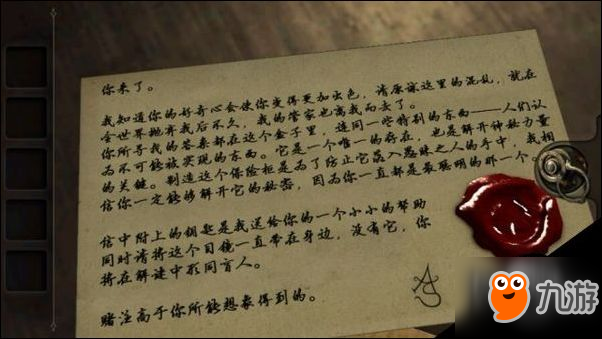 你来了。
我知道你的好奇心会使你变得更加出色，请原谅这里的混乱，就在
全世界抛弃我后不久，我的管家也离我而去了。
你所寻找的答案都在这个盒子里，连同一些特别的东西——人们认
为不可能被实现的东西。它是一个唯一的存在，也是解开神秘力量
的关键。制造这个保险柜是为了防止它落入愚昧之人的手中，我相
信你一定能够解开它的秘密，因为你一直都是最聪明的那一个。
信中附上的钥匙是我送给你的一个小小的帮助
同时请将这个目镜一直带在身边，没有它，你
将在解谜中形同盲人。
赌注高于你所能想象得到的。
AS
九游